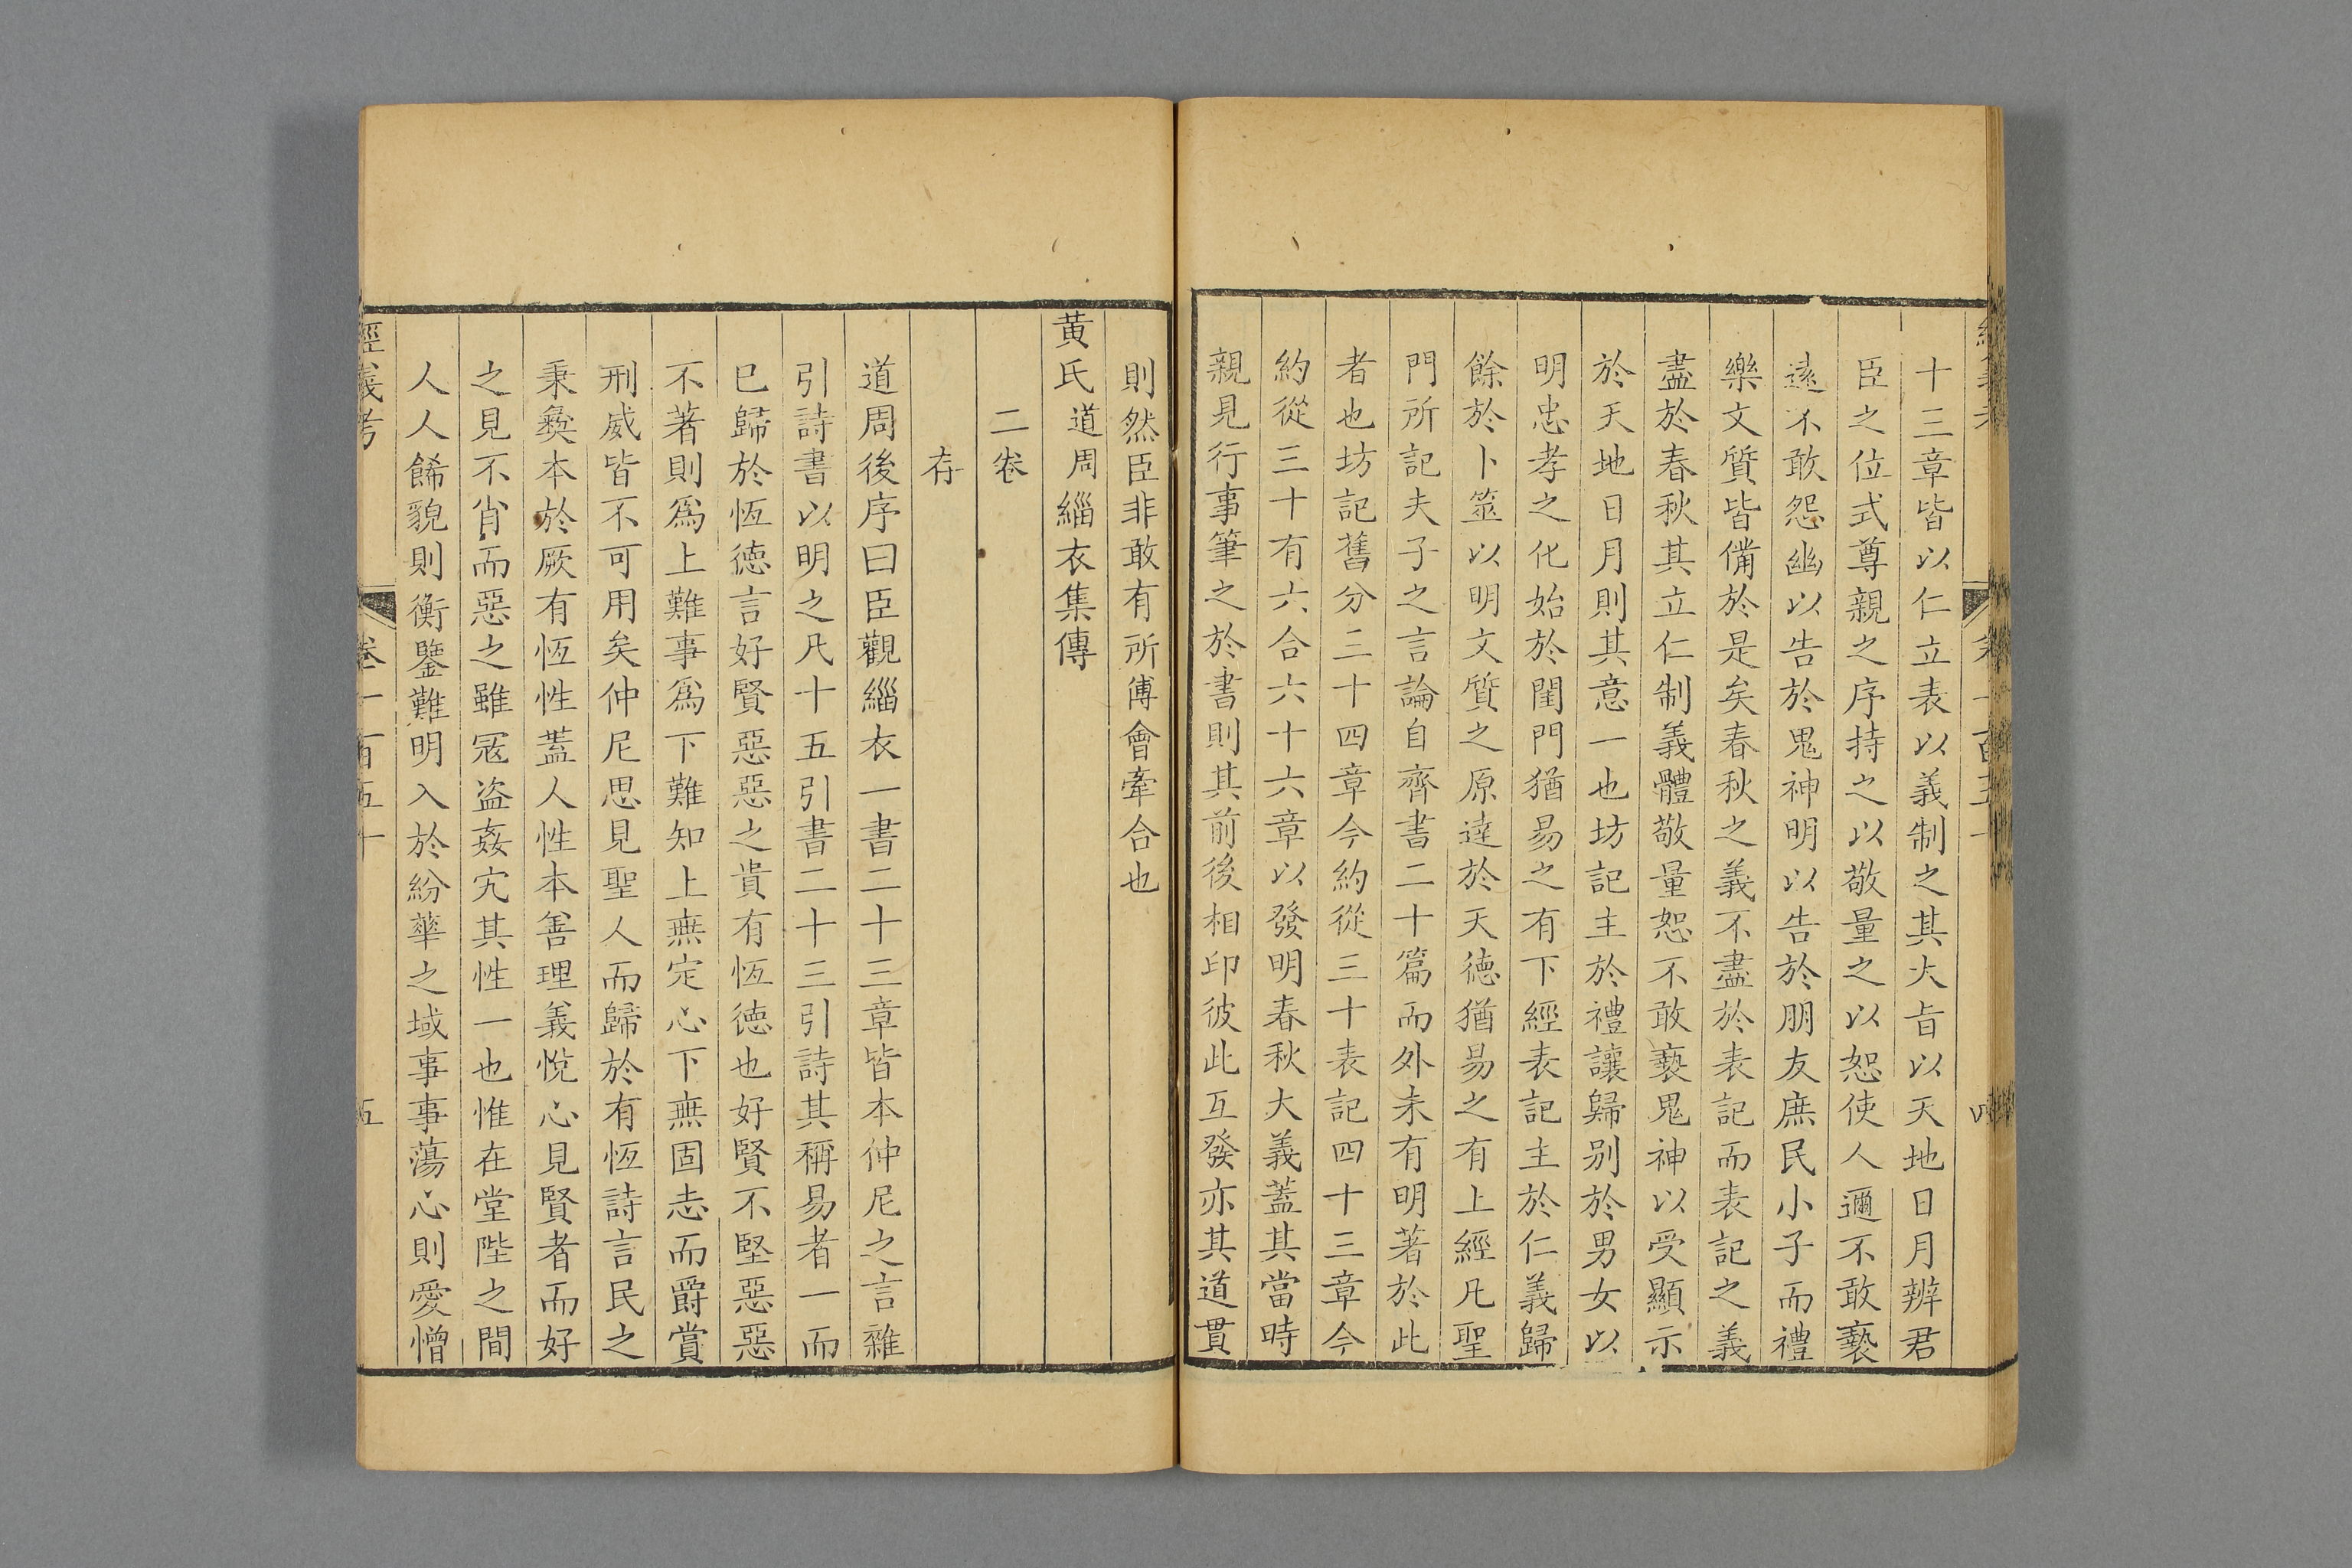 十三章皆以仁立表以義制之其大旨以天地日月辨君
臣之位式尊親之序持之以敬量之以恕使人邇不敢褻
遠不敢怨幽以告於鬼神明以告於朋友庶民小子而禮
樂文質皆備於是矣春秋之義不盡於表記而表記之義
盡於春秋其立仁制義體敬量恕不敢褻鬼神以受顯示
於天地日月則其意一也坊記主於禮讓歸别於男女以
明忠孝之化始於閨門猶易之有下經表記主於仁義歸
餘於卜筮以明文質之原達於天德猶易之有上經凡聖
門所記夫子之言論自齊書二十篇而外未有明著於此
者也坊記舊分三十四章今約從三十表記四十三章今
約從三十有六合六十六章以發明春秋大義蓋其當時
親見行事筆之於書則其前後相印彼此互發亦其道貫
則然臣非敢有所傅會牽合也
黄氏道周緇衣集傳
二卷
存
道周後序曰臣觀緇衣一書二十三章皆本仲尼之言雜
引詩書以明之凡十五引書二十三引詩其稱易者一而
已歸於恆德言好賢惡惡之貴有恆德也好賢不堅惡惡
不著則爲上難事爲下難知上無定心下無固志而爵賞
刑威皆不可用矣仲尼思見聖人而歸於有恆詩言民之
秉彝本於厥有恆性蓋人性本善理義悅心見賢者而好
之見不肖而惡之雖冦盗姦宄其性一也惟在堂陛之間
人人餙貌則衡鑒難明入於紛華之域事事蕩心則愛憎
經義考 卷一百五十 五